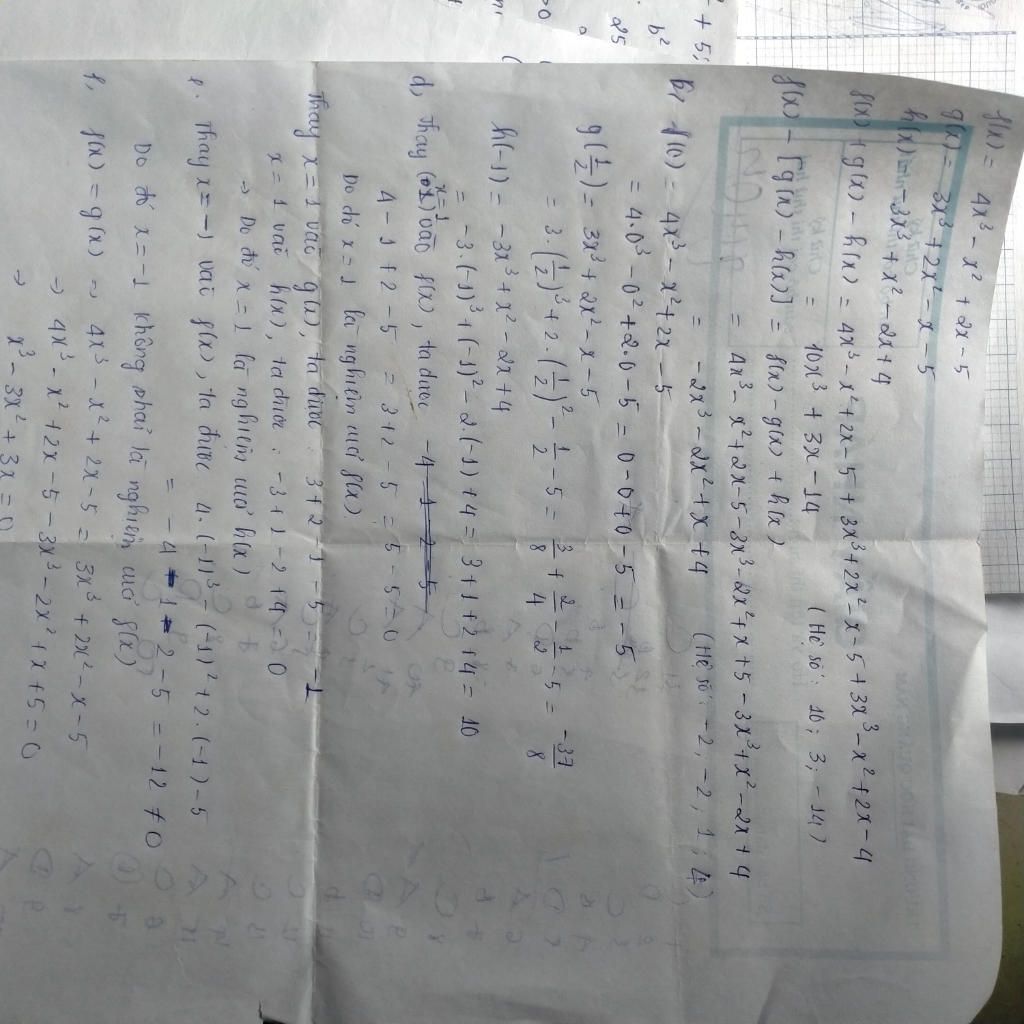 f(x) = 4x³ - x² + 2x - 5
g(x) = 3x³ + 2x² - x - 5
h(x) = -3x³ + x² - 2x + 4
f(x) + g(x) - h(x) = 4x³ - x² + 2x - 5 + 3x³ + 2x² - x - 5 + 3x³ - x² + 2x - 4
= 10x³ + 3x - 14 (Hệ số: 10; 3; -14)
f(x) - [g(x) - h(x)] = f(x) - g(x) + h(x)
= 4x³ - x² + 2x - 5 - 3x³ - 2x² + x + 5 - 3x³ + x² - 2x + 4
= -2x³ - 2x² + x + 4 (Hệ số: -2, -2, 1; 4)
b, f(0) = 4x³ - x² + 2x - 5
= 4.0³ - 0² + 2.0 - 5 = 0 - 0 + 0 - 5 = -5
g(1/2) = 3x³ + 2x² - x - 5
= 3.(1/2)³ + 2.(1/2)² - 1/2 - 5 = 3/8 + 2/4 - 1/2 - 5 = -37/8
h(-1) = -3x³ + x² - 2x + 4
= -3.(-1)³ + (-1)² - 2.(-1) + 4 = 3 + 1 + 2 + 4 = 10
d, Thay x=1 vào f(x), ta được
4 - 1 + 2 - 5 = 3 + 2 - 5 = 5 - 5 = 0
Do đó x = 1 là nghiệm của f(x)
Thay x = 1 vào g(x), ta được: 3 + 2 - 1 - 5 = -1
x = 1 vào h(x), ta được: -3 + 1 - 2 + 4 = 0
→ Do đó x = 1 là nghiệm của h(x)
e. Thay x = -1 vào f(x), ta được 4.(-1)³ - (-1)² + 2.(-1) - 5
= -4 - 1 - 2 - 5 = -12 ≠ 0
Do đó x = -1 không phải là nghiệm của f(x)
f, f(x) = g(x) ⇒ 4x³ - x² + 2x - 5 = 3x³ + 2x² - x - 5
⇒ 4x³ - x² + 2x - 5 - 3x³ - 2x² + x + 5 = 0
⇒ x³ - 3x² + 3x = 0